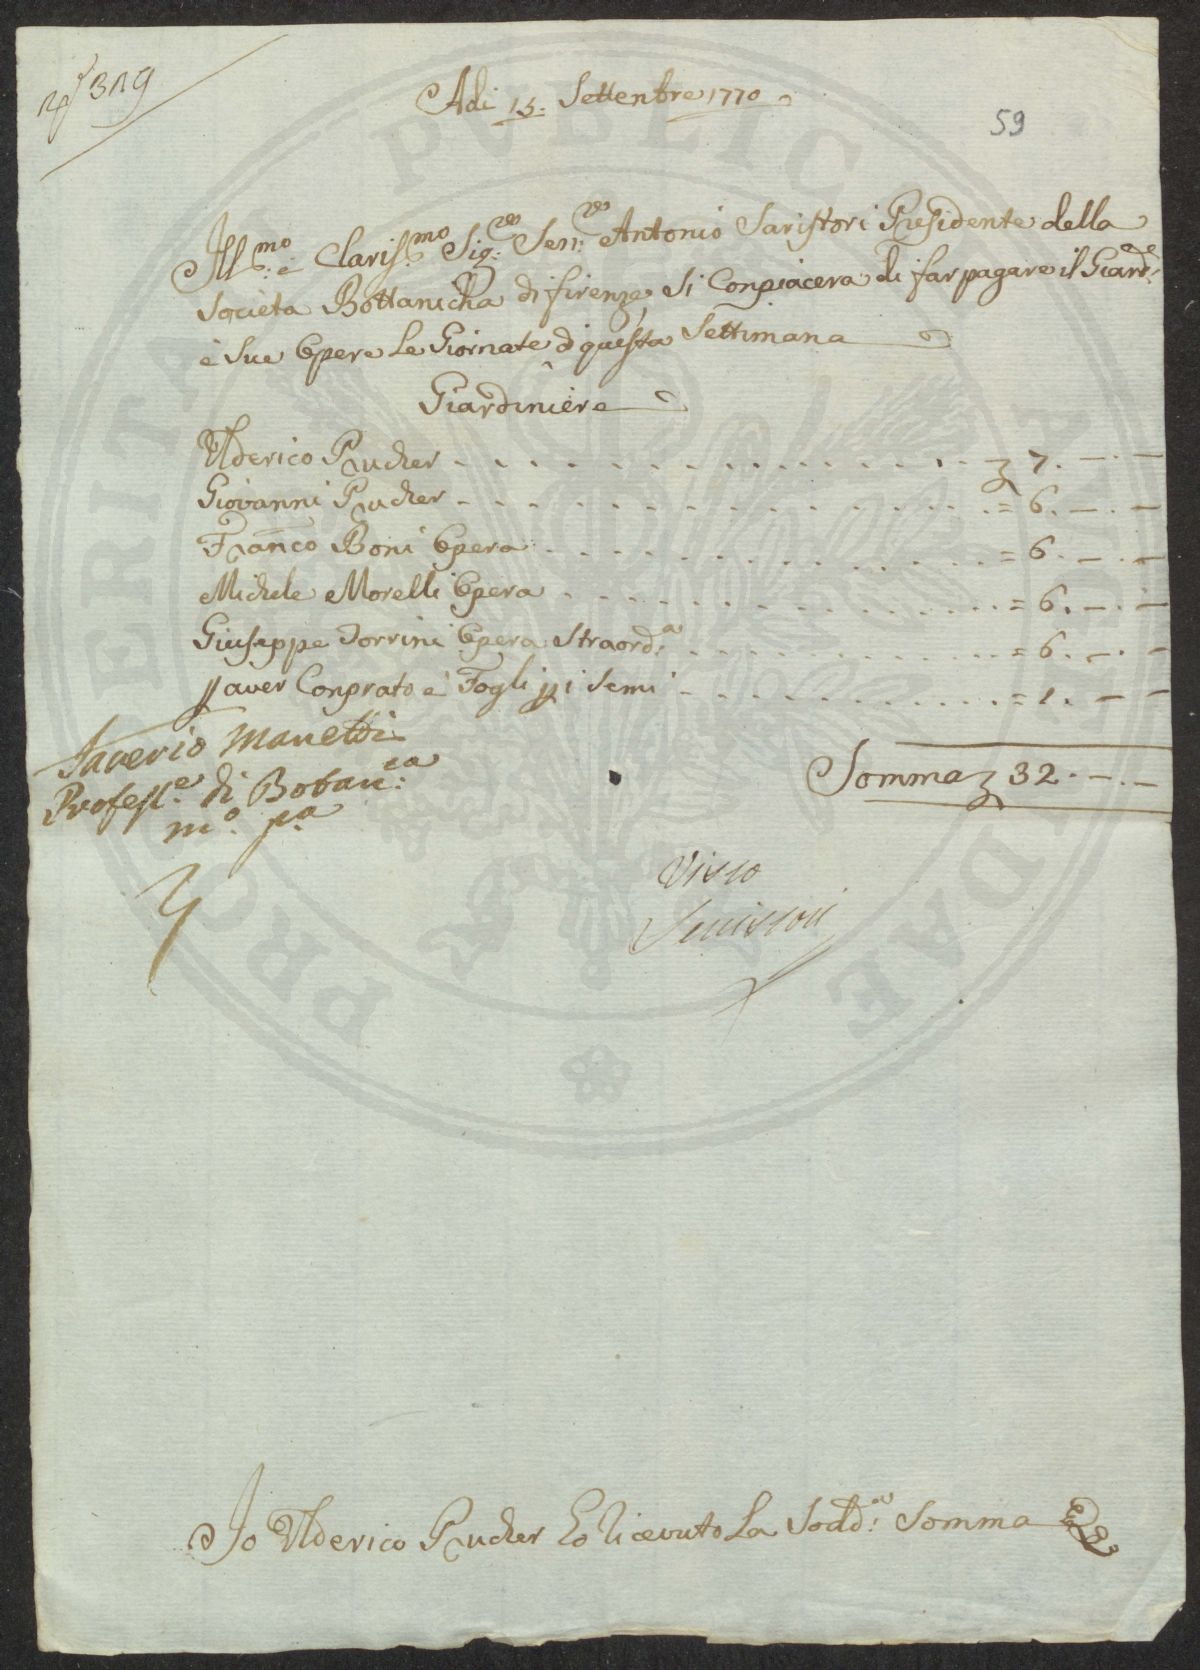 319
Adi 15. Settenbre 1770
59
Ill:mo e Claris:mo Sig:re Sen:re Antonio Saristori Presidente della
Societa Bottanicha di firenze, Si Conpiacera di far pagare il Giard:e
è Sue Opere Le Giornate d questa Settimana
Giardiniere
Ulderico Prucher 7. — . —
Giovanni Prucher = 6. — . —
Franco Boni Opera = 6. — . —
Michele Morelli Opera = 6. — . —
Giuseppe Torrini Opera Straord:a = 6. — . —
p aver Conprato e Fogli pp i Semi = 1. — —
Saverio Manetti
Profess:e di Botan:ca
m:o p:a
Somma 32. — . —
Visto
Serristori
Io Ulderico Prucher Ho Ricevuto La Sodd:a Somma
PROSPERITATI PUBLICAE